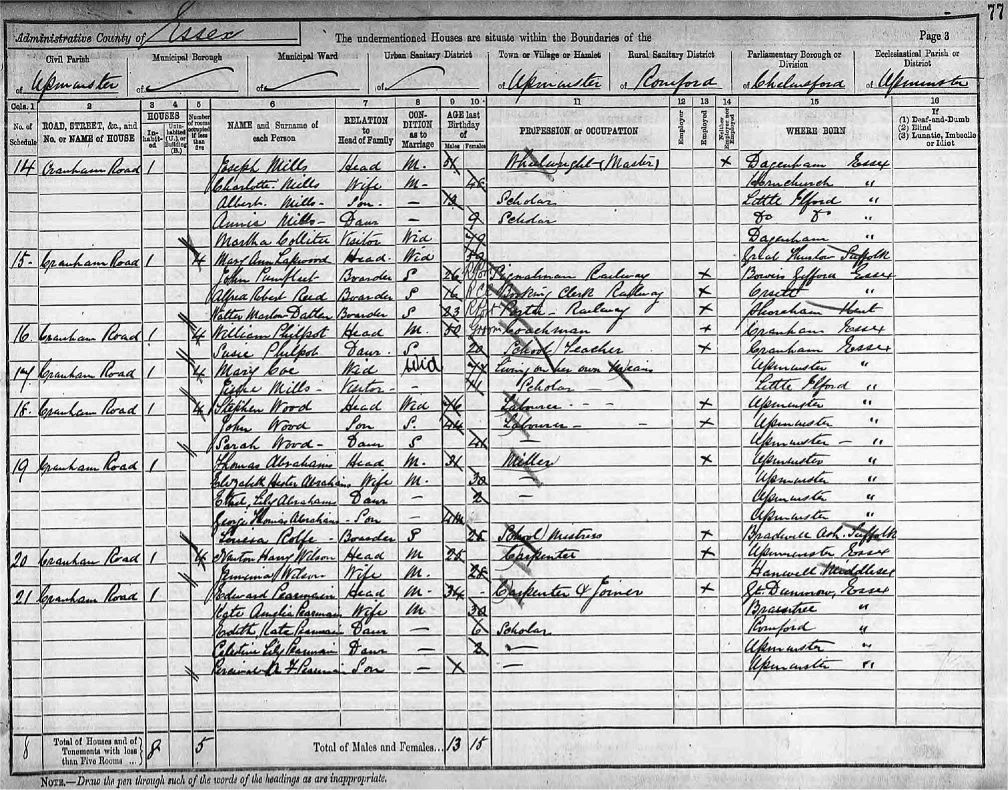 77
Administrative County of Essex The undermentioned Houses are situate within the Boundaries of the Page 3
Civil Parish Municipal Borough Municipal Ward Urban Sanitary District Town or Village or Hamlet Rural Sanitary District Parliamentary Borough or Division Ecclesiastical Parish or District
of Upminster of of of of Upminster of Romford of Chelmsford of Upminster
Cols. 1 2 3 4 5 6 7 8 9 10 11 12 13 14 15 16
No. of Schedule ROAD, STREET, &c., and No. or NAME of HOUSE HOUSES Inhabited Uninhabited (U.) or Building (B.) Number of rooms occupied if less than five NAME and Surname of each Person RELATION to Head of Family CONDITION as to Marriage AGE last Birthday of Males Females PROFESSION or OCCUPATION Employer Employed Neither WHERE BORN If (1) Deaf-and-Dumb (2) Blind (3) Lunatic, Imbecile or Idiot
14 Cranham Road 1 Joseph Mills Head M. 51 Wheelwright (Master) × Dagenham Essex
Charlotte Mills Wife M- 48 Hornchurch "
Albert Mills Son - 13 Scholar Little Ilford "
Annie Mills Daur - 9 Scholar Do Do "
Martha Visitor Wid 79 Dagenham "
15 Cranham Road 1 4 Mary Ann Head Wid Great Thurlow Suffolk
John Boarder S 26 Signalman Railway × Bowers Gifford Essex
Alfred Robert Reed Boarder S 16 Booking Clerk Railway × Orsett "
Walter Boarder S 23 Porter Railway × Shoreham Kent
16 Cranham Road 1 4 William Philpot Head M. 50 Groom Coachman × Cranham Essex
Susie Philpot Daur S 20 School Teacher × Cranham Essex
17 Cranham Road 1 4 Mary Coe Wid Wid 77 Living on her own Means Upminster "
Mills Visitor - 11 Scholar Little Ilford "
18 Cranham Road 1 4 Stephen Wood Head Wid 76 Labourer × Upminster "
John Wood Son S. 44 Labourer × Upminster "
Sarah Wood Daur S 41 - Upminster "
19 Cranham Road 1 Thomas Abrahams Head M. 31 Miller × Upminster "
Elizabeth Hester Abrahams Wife M. 30 - Upminster "
Ethel Lily Abrahams Daur - 2 - Upminster "
George Thomas Abrahams Son - Upminster "
Louisa Rolfe Boarder S 25 School Mistress × Bradwell Ash Suffolk
20 Cranham Road 1 4 Harry Wilson Head M 25 Carpenter × Upminster Essex
Jemima Wilson Wife M. 28 Hanwell Middlesex
21 Cranham Road 1 Edward Pearmain Head M. 34 Carpenter & Joiner × Gt. Dunmow, Essex
Kate Amelia Pearmain Wife M 30 Braintree "
Edith Kate Pearmain Daur - 6 Scholar Romford "
Celestine Lily Pearmain Daur - 2 - Upminster "
Percival Pearmain Son - - Upminster "
8 Total of Houses and of Tenements with less than Five Rooms ... 8 5 Total of Males and Females... 13 15
NOTE.—Draw the pen through such of the words of the headings as are inappropriate.